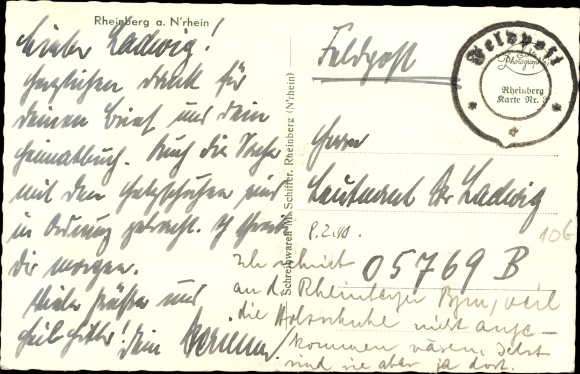 Rheinberg a. N'rhein
Lieber Ladwig!
Herzlichen Dank für
deinen Brief und dein
Heimatbuch. Auch die Sache
mit den Holzschuhen wird
in Ordnung gebracht. Ich schreibe
Dir morgen.
Viele Grüße und
Heil Hitler! Dein
Schreibwaren M. Schiffer, Rheinberg (N'rhein)
Feldpost
Feldpost
Photograph
Rheinberg
Karte Nr.
Herrn
Leutnant Dr. Ladwig
8.2.40.
05769 B
106
Ich schrieb
an d. Rheinberger Bgm, weil
die Holzschuhe nicht ange-
kommen wären. Jetzt
sind sie aber ja dort.